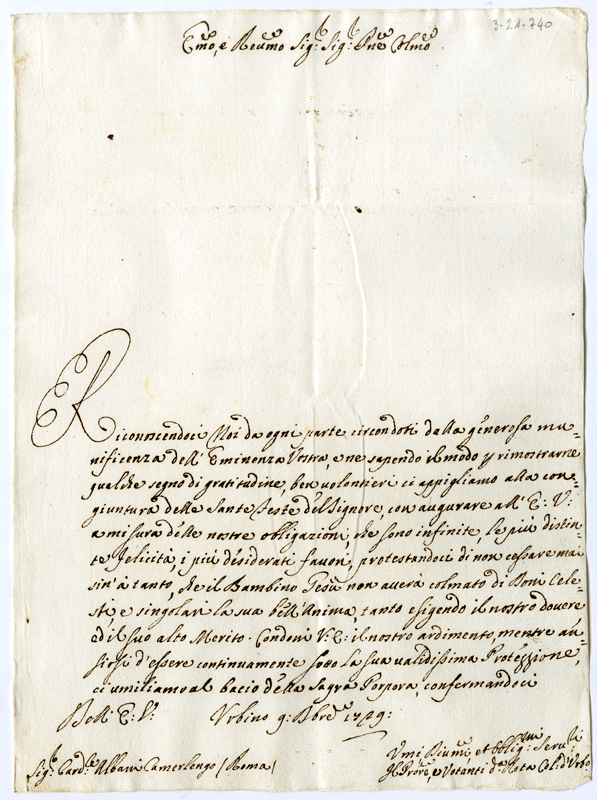 3-21-740
Emo, e Reumo Sig.r Sig.r Pne Colmo
Riconoscendoci Noi da ogni parte circondati dalla generosa mu=
nificenza dell' Eminenza Vostra, e ne sapendo il modo p rimostrarne
qualche segno di gratitudine, ben volontieri ci appigliamo alla con=
giuntura delle Sante Feste del Signore, con augurare all' E: V:
a misura delle nostre obligazioni, che sono infinite le più distin=
te felicità, i più desiderati favori, protestandoci di non cessare mai
sin' à tanto, che il Bambino Gesù non averà colmato di Doni Cele=
sti, e singolari la sua bell' Anima, tanto esigendo il nostro dovere
ed il suo alto Merito. Condoni V: E: il nostro ardimento, mentre an=
siosi d'essere continuamente sotto la sua validissima Protezzione,
ci umiliamo al bacio della Sagra Porpora, confermandoci
Dell' E: V: Urbino 9: Xbre 1749:
Umi Diumi, et obblig.mi Seru.ri
Sig.r Card.le Albani Camerlengo /Roma/ Il Prore, e Votanti d.a Rota Col: d'Urbo